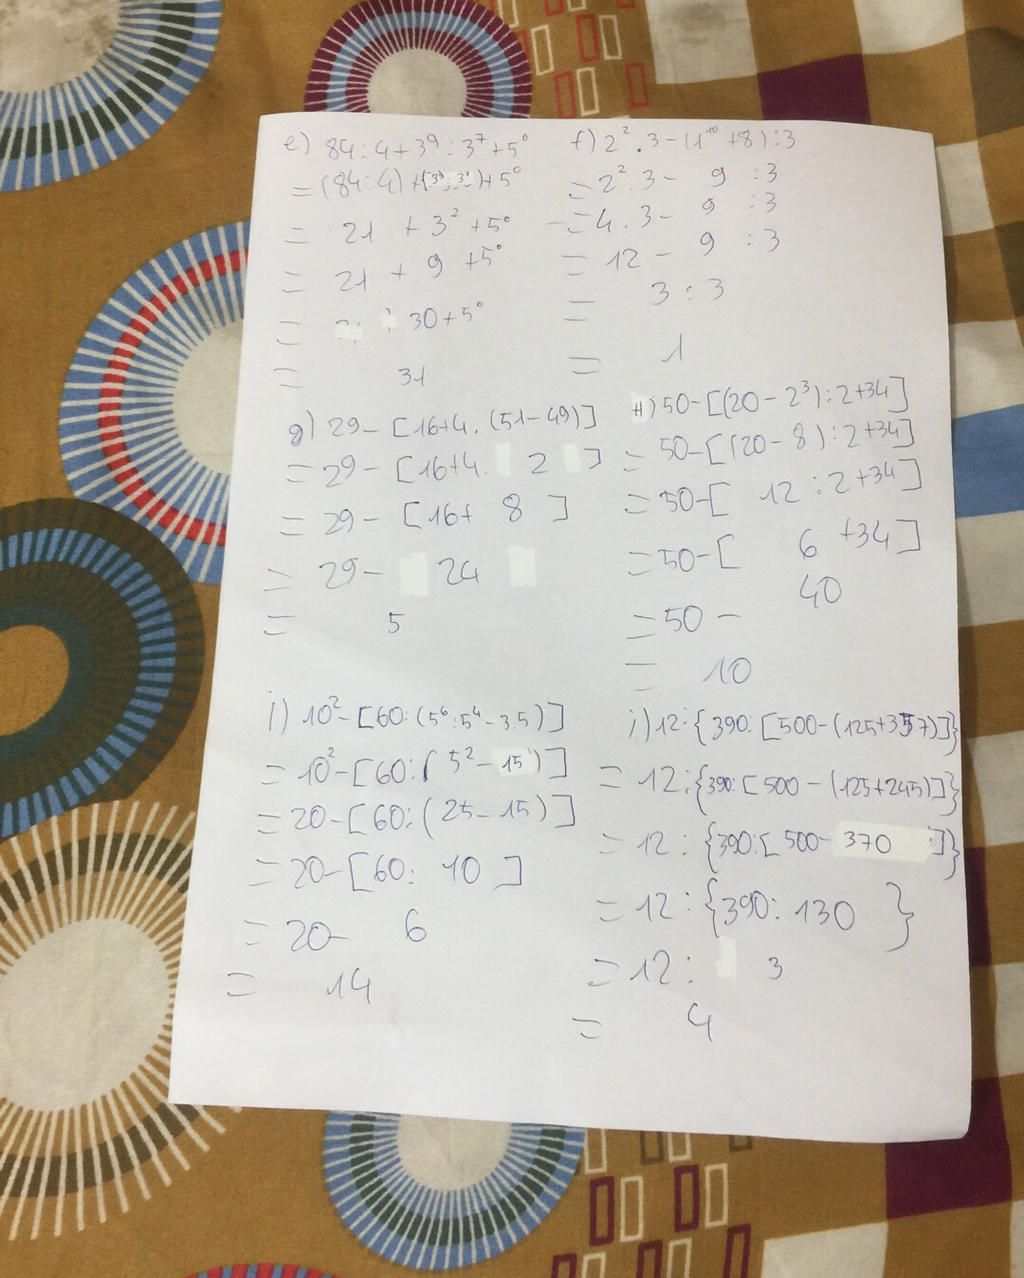 e) 84 : 4 + 3⁹ : 3⁷ + 5⁰
= (84 : 4) + (3⁹ : 3⁷) + 5⁰
= 21 + 3² + 5⁰
= 21 + 9 + 5⁰
= 30 + 5⁰
= 31
f) 2² . 3 - (1¹⁰ + 8) : 3
= 2² . 3 - 9 : 3
= 4 . 3 - 9 : 3
= 12 - 9 : 3
= 3 : 3
= 1
g) 29 - [16 + 4 . (51 - 49)]
= 29 - [16 + 4 . 2 ]
= 29 - [16 + 8 ]
= 29 - 24
= 5
H) 50 - [(20 - 2³) : 2 + 34]
= 50 - [(20 - 8) : 2 + 34]
= 50 - [ 12 : 2 + 34]
= 50 - [ 6 + 34]
= 50 - 40
= 10
i) 10² - [60 : (5⁶ : 5⁴ - 3.5)]
= 10² - [60 : ( 5² - 15 )]
= 20 - [60 : (25 - 15)]
= 20 - [60 : 10 ]
= 20 - 6
= 14
j) 12 : {390 : [500 - (125 + 35 7)]}
= 12 : {390 : [500 - (125 + 245)]}
= 12 : {390 : [500 - 370 ]}
= 12 : {390 : 130 }
= 12 : 3
= 4